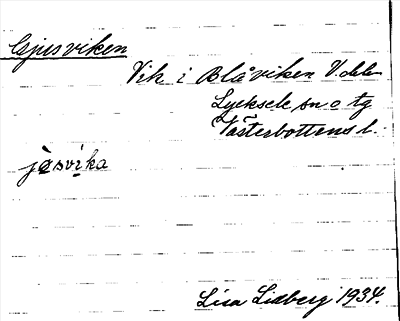 Gjusviken
Vik i Blåviken V. delen
Lycksele sn o tg
Västerbottens l.
jøsvika
Lisa Lidberg 1934.